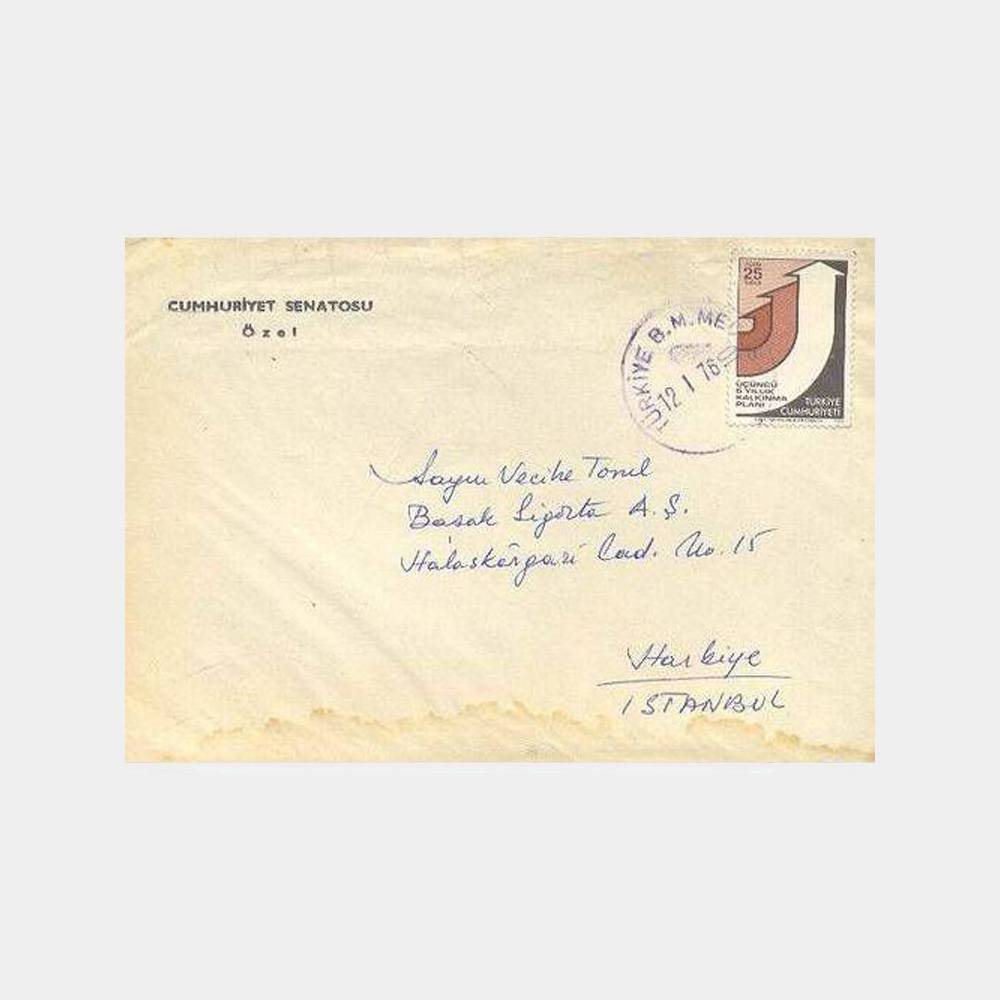 CUMHURİYET SENATOSU
Özel
TÜRKİYE B.M.ME
12 1 76
25
ÜÇÜNCÜ
5 YILLIK
KALKINMA
PLANI
TÜRKİYE
CUMHURİYETİ
Sayın Vecihe
Başak Sigorta A.Ş.
Halâskârgazi Cad. No. 15
Harbiye
İSTANBUL